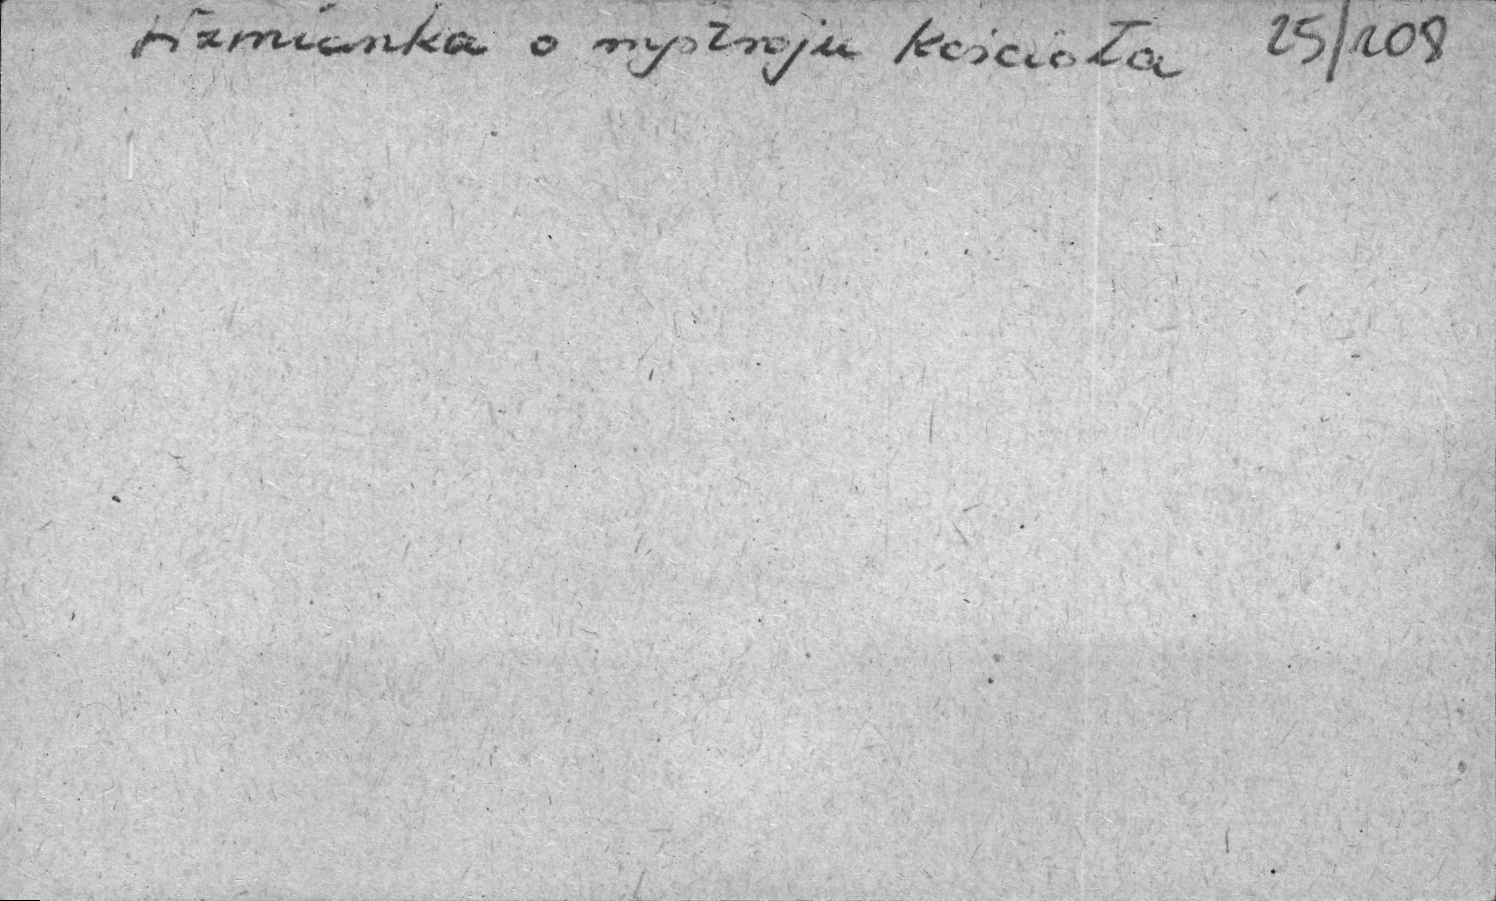 Wzmianka o wystroju kościoła 25/108